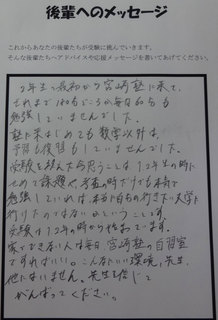 後輩へのメッセージ
これからあなたの後輩たちが受験に挑んでいきます。
そんな後輩たちへアドバイスや応援メッセージを書いてあげてください。
2年生の最初から宮崎塾に来て、
それまで180分どころか毎日60分も
勉強していませんでした。
塾に来はじめても数学以外は
予習も復習もしていませんでした。
受験を終えた今思うことは1,2年生の時に
せめて課題や考査の時だけでも本気で
勉強していれば本当に自分の行きたい大学に
行けたのではないかということです。
受験は1,2年の時から始まっています。
家でできない人は毎日、宮崎塾の自習室
ですればいい。こんなにいい環境、先生、
他にはいません。先生を信じて
がんばってください。